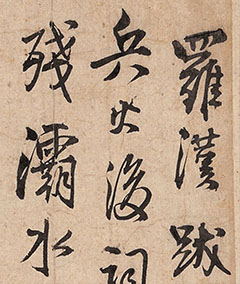 羅漢跋
兵火後詞
殘灞水